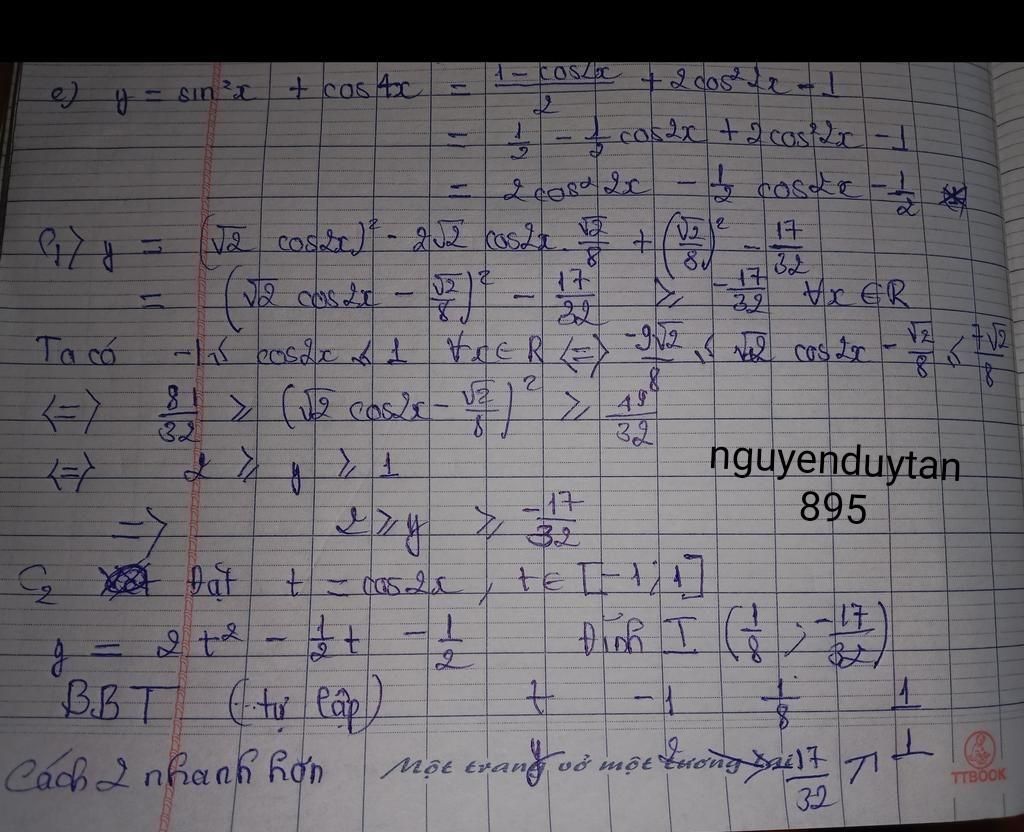 e) y = sin²x + cos4x = (1 - cos2x)/2 + 2cos²2x - 1
= 1/2 - 1/2 cos2x + 2cos²2x - 1
= 2cos²2x - 1/2 cos2x - 1/2
C₁) y = (√2 cos2x)² - 2√2 cos2x . √2/8 + (√2/8)² - 17/32
= (√2 cos2x - √2/8)² - 17/32 ⩾ -17/32 ∀x ∈ R
Ta có -1 ⩽ cos2x ⩽ 1 ∀x ∈ R <=> -9√2/8 ⩽ √2 cos2x - √2/8 ⩽ 7√2/8
<=> 81/32 ⩾ (√2 cos2x - √2/8)² ⩾ 49/32
<=> 2 ⩾ y ⩾ 1
nguyenduytan
895
=> 2 ⩾ y ⩾ -17/32
C₂ Đặt t = cos2x, t ∈ [-1; 1]
y = 2t² - 1/2 t - 1/2 Đỉnh I (1/8 ; -17/32)
BBT (tự lập) t -1 1/8 1
y 2 ↘ -17/32 ↗ 1
Cách 2 nhanh hơn
Một trang vở một tương lai
TTBOOK